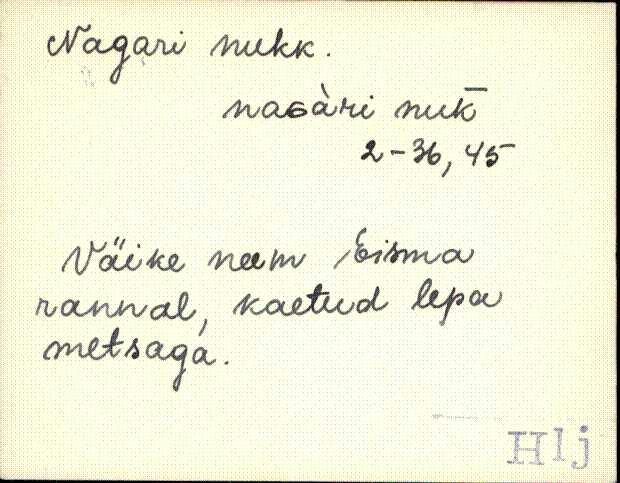 Nagari nukk.
naɢàri nuk̄
2-36, 45
Väike neem Eisma
rannal, kaetud lepa
metsaga.
Hlj